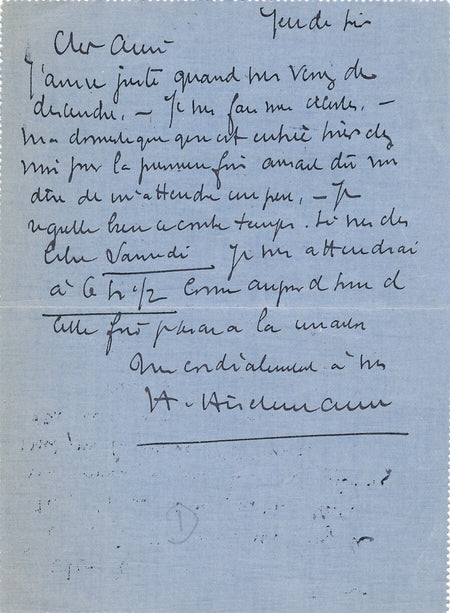 Jeudi soir
Cher Ami
J'arrive juste quand vous venez de
descendre. — Je vous fais mes excuses. —
ma domestique qui est entrée hier chez
moi pour la première fois aurait dû vous
dire de m'attendre un peu. — Je
regrette bien ce contre temps. Si vous êtes
libre Samedi Je vous attendrai
à 6 h 1/2 comme aujourd'hui et
cette fois je serai à la maison
cordialement à vous